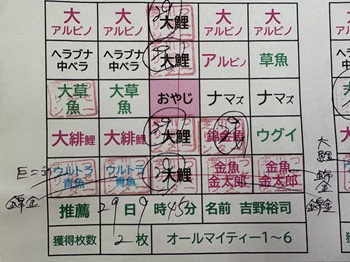 大アルビノ 大アルビノ 大鯉 大アルビノ 大アルビノ
ヘラブナ中ベラ ヘラブナ中ベラ 大鯉 アルビノ 草魚
大草魚 大草魚 おやじ ナマズ ナマズ
大緋鯉 大緋鯉 大鯉 錦金魚 ウグイ
ウルトラ青魚 ウルトラ青魚 大鯉 金魚金太郎 金魚金太郎
推薦 29日9時45分 名前 吉野裕司
獲得枚数 2枚 オールマイティー1〜6
大鯉
錦金